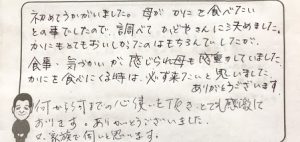 初めてうかがいました。母が かにを食べたい
との事でしたので、調べて かどやさんに決めました。
かにもとてもおいしかったのはもちろんでしたが、
食事・気づかいが感じられ母も感激していました。
かにを食べにくる時は、必ず来たいと思いました。
ありがとうございます
何から何までの心使いを頂きとても感激して
おります。ありがとうございました。
又、家族で伺いと思います。